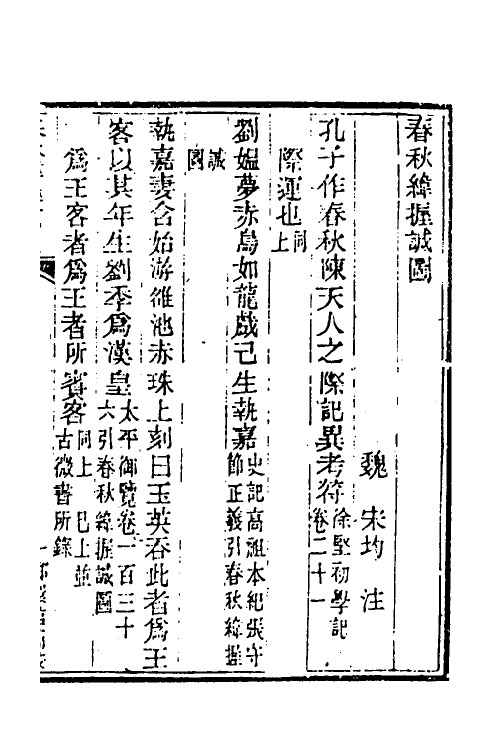 春秋緯握誠圖
魏　宋均　注
孔子作春秋陳天人之際記異考符徐堅初學記卷二十一
際運也同上
劉媼夢赤鳥如龍戲己生執嘉史記高祖本紀張守節正義引春秋緯握
誠圖
執嘉妻含始游雒池赤珠上刻曰玉英吞此者爲王
客以其年生劉季爲漢皇太平御覽卷一百三十六引春秋緯握誠圖
爲王客者爲王者所賓客同上　已上並古微書所錄